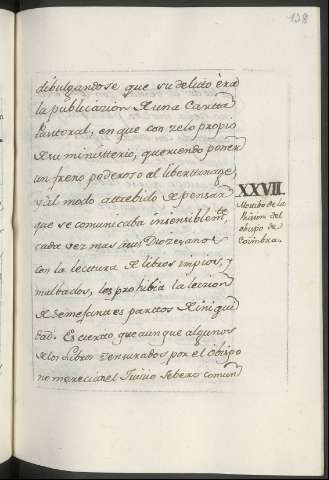 138
dibulgandose que su delicto èra
la publicazion de una Cartta
Pastoral, en que con zelo propio
de su ministterio, queriendo poner
un freno poderoso al libertinage,
y al modo attrebido de pensar
que se comunicaba insensiblemte
cada vez mas à sus Diozesanos
con la lectura de libros impios, y
malbados, les prohibia la leccion
de semejantes parttos de iniqui
dad. Es ciertto que aunque algunos
de los Libros Zensurados por el Obispo
no merecian el Juizio sebero comun
XXVII.
Motibo de la
Prision del
obispo de
Coimbra.